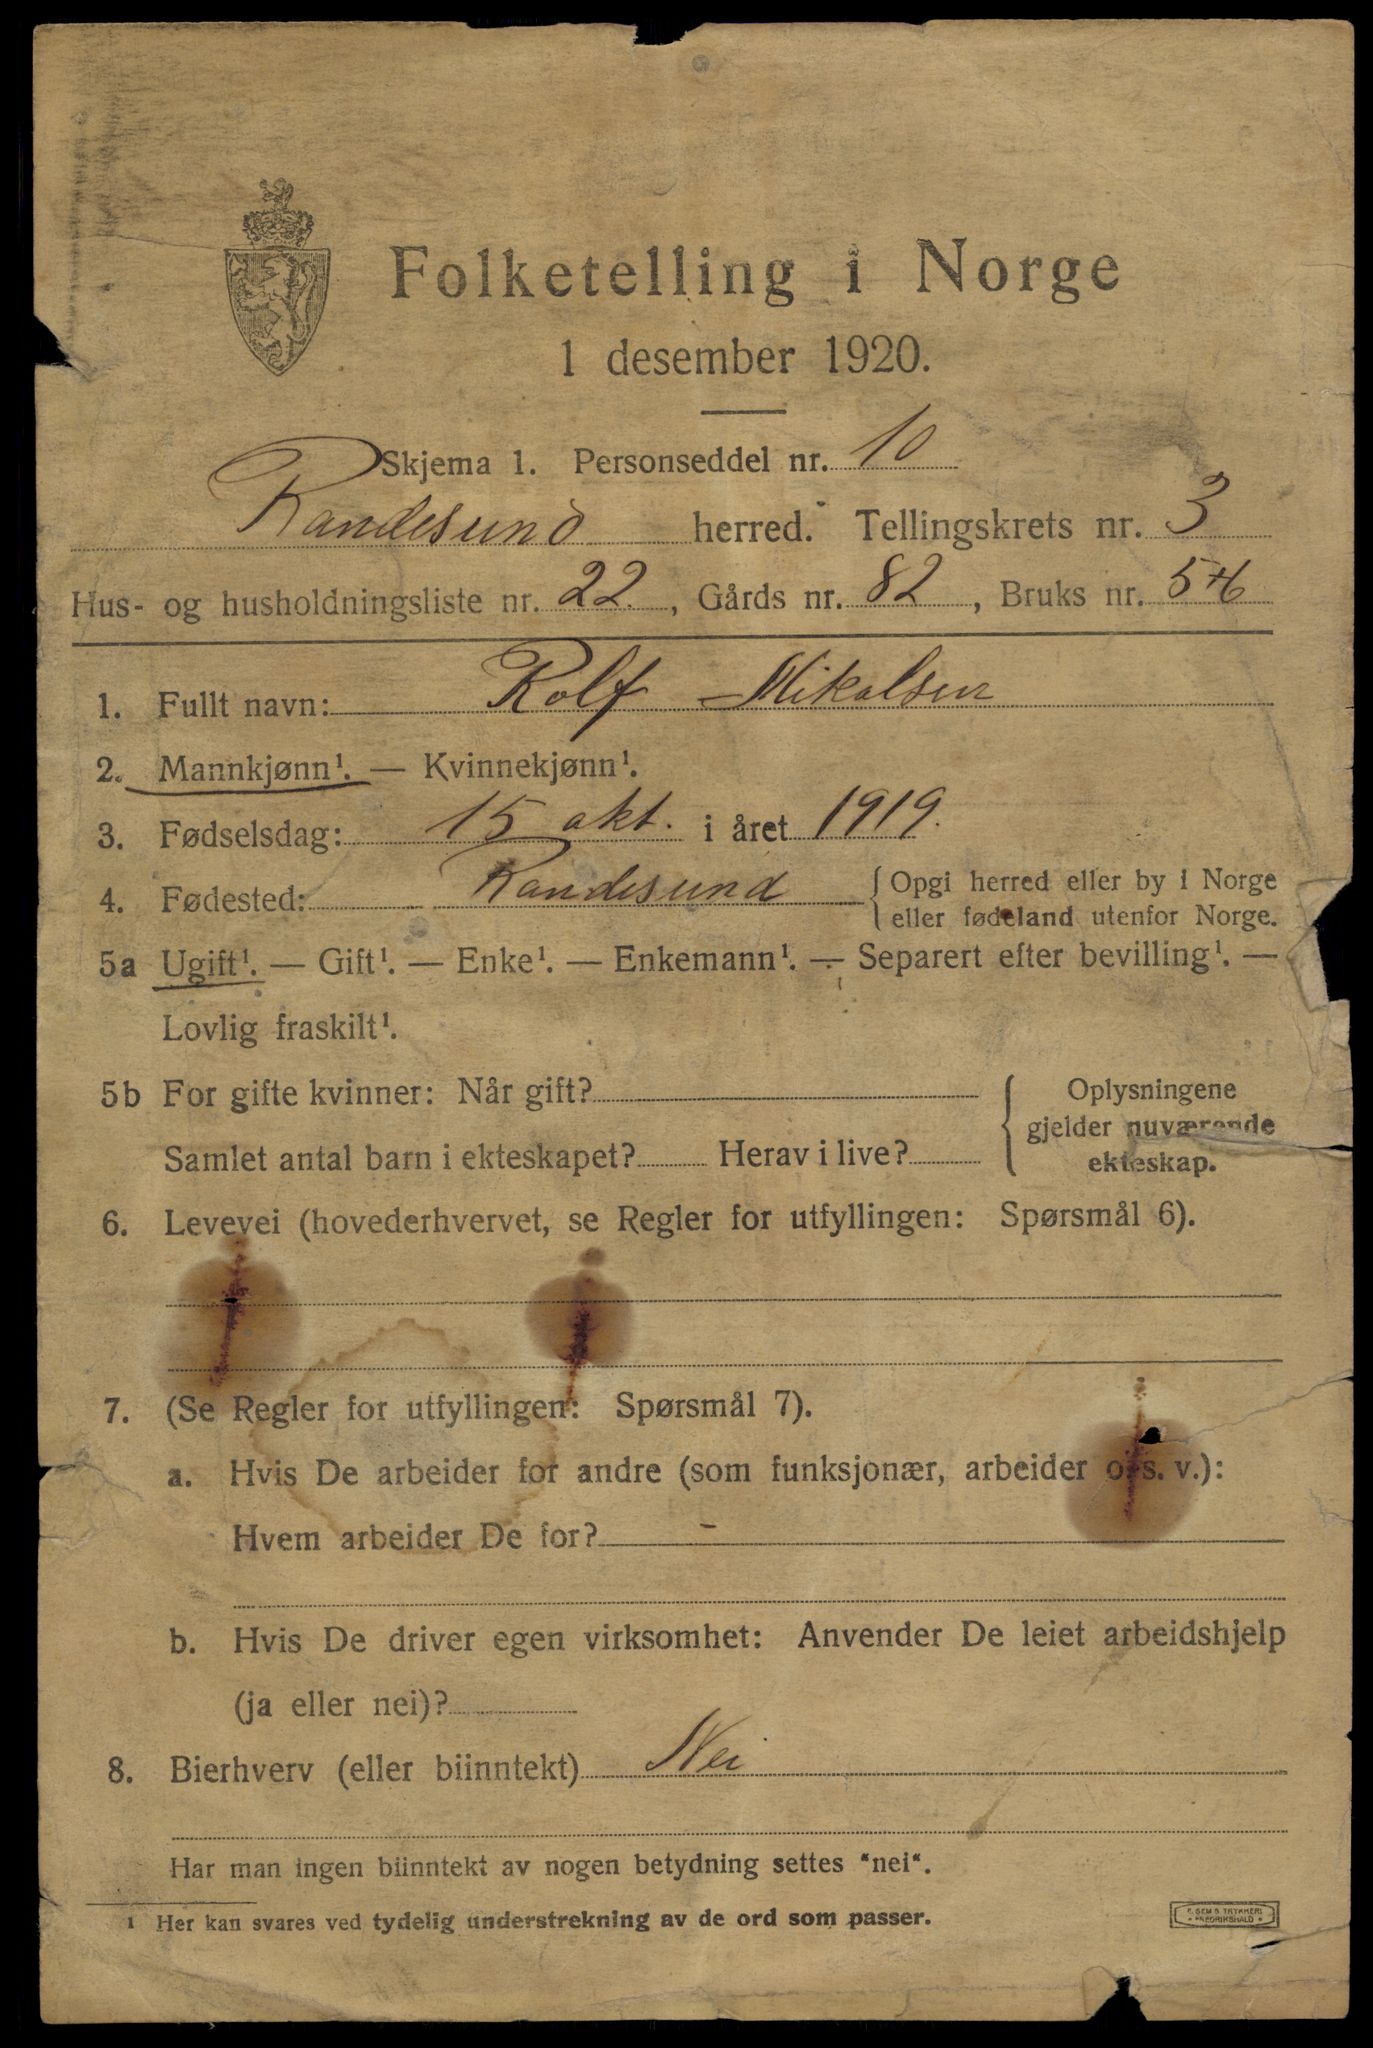 Folketelling i Norge
1 desember 1920.
Skjema 1. Personseddel nr. 10
Randesund herred. Tellingskrets nr. 3
Hus- og husholdningsliste nr. 22, Gårds nr. 82, Bruks nr. 546
1. Fullt navn: Rolf Mikalsen
2. Mannkjønn¹. — Kvinnekjønn¹.
3. Fødselsdag: 15 okt. i året 1919.
4. Fødested: Randesund { Opgi herred eller by i Norge
eller fødeland utenfor Norge.
5a Ugift¹. — Gift¹. — Enke¹. — Enkemann¹. — Separert efter bevilling¹. —
Lovlig fraskilt¹.
5b For gifte kvinner: Når gift?
Samlet antal barn i ekteskapet? Herav i live?
Oplysningene
gjelder nuværende
ekteskap.
6. Levevei (hovederhvervet, se Regler for utfyllingen: Spørsmål 6).
7. (Se Regler for utfyllingen: Spørsmål 7).
a. Hvis De arbeider for andre (som funksjonær, arbeider o. s. v.):
Hvem arbeider De for? -
b. Hvis De driver egen virksomhet: Anvender De leiet arbeidshjelp
(ja eller nei)?
8. Bierhverv (eller biinntekt) Nei
Har man ingen biinntekt av nogen betydning settes "nei".
¹ Her kan svares ved tydelig understrekning av de ord som passer.
SEM S TRYKKERI
FREDRIKSHALD